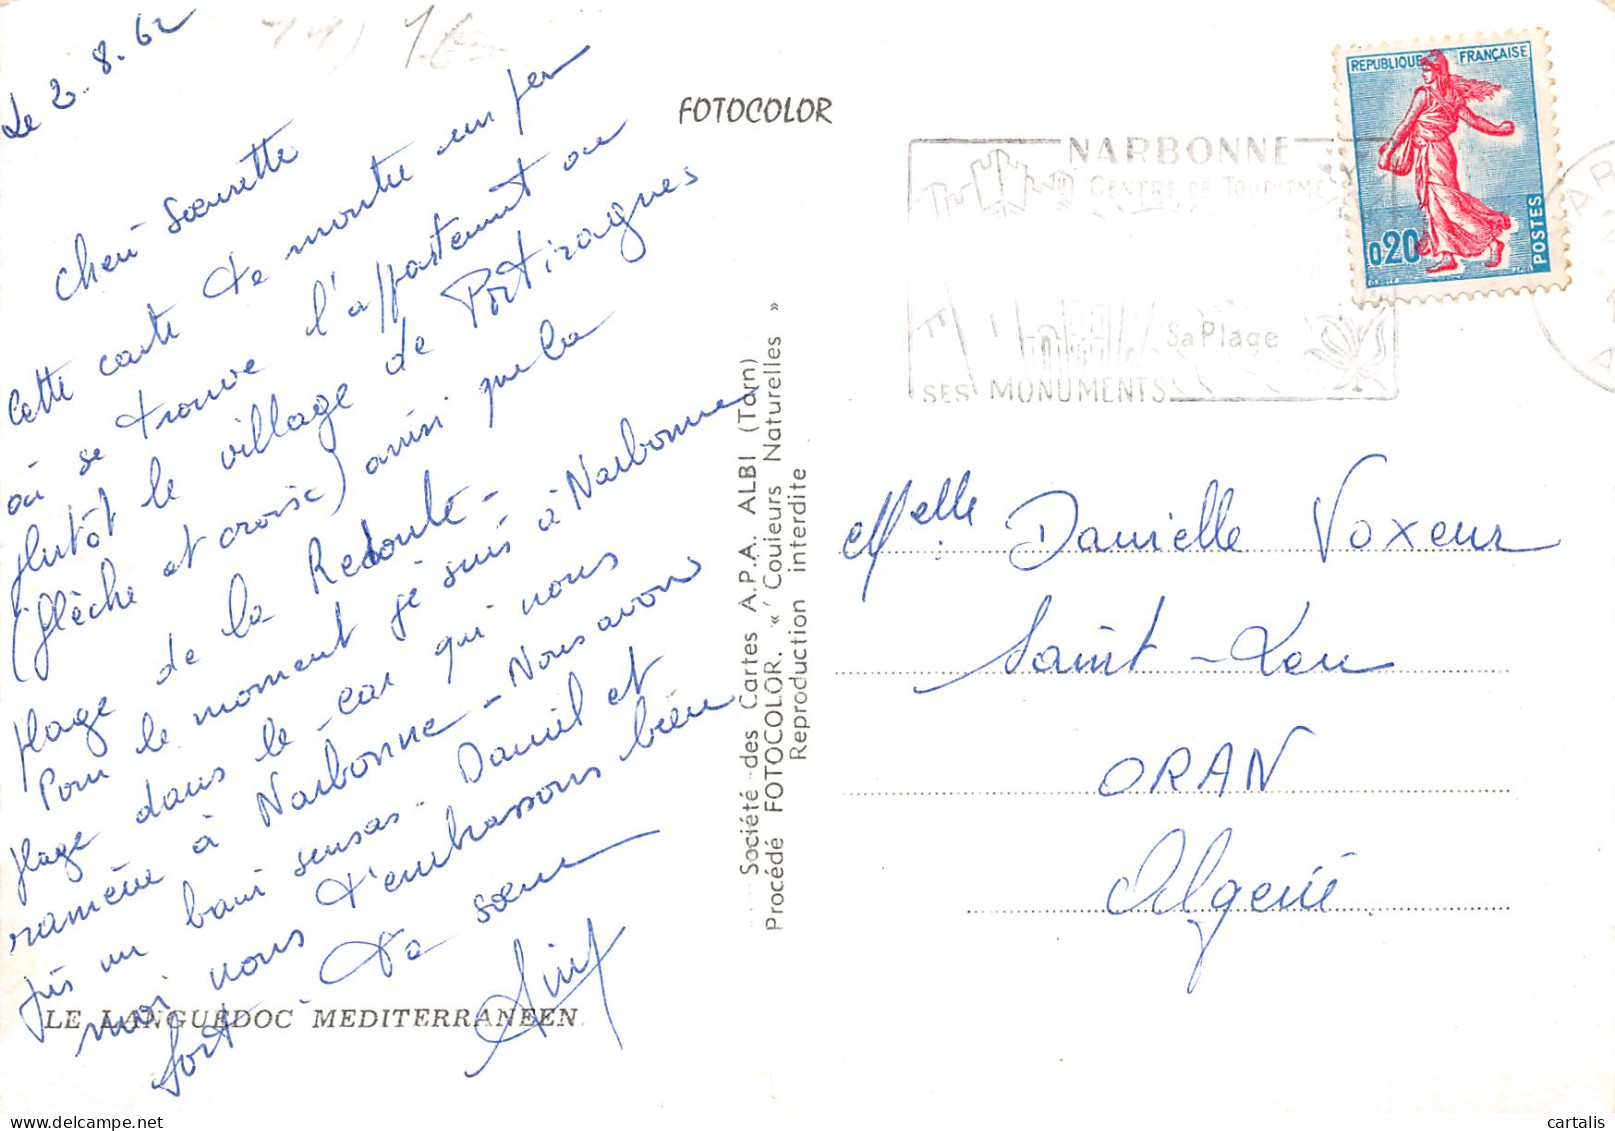 Le 2.8.62
Cheri soeurette
Cette carte te montre un peu
où se trouve l'appartement ou
plutôt le village de Portiragnes
(flèche et croix) ainsi que la
plage de la Redoute -
Pour le moment je suis à Narbonne
plage dans le car qui nous
ramène à Narbonne - Nous avons
pris un bain sensas - Daniel et
moi nous t'embrassons bien
fort - Ta soeur
LE LANGUEDOC MEDITERRANEEN
FOTOCOLOR
Société des Cartes A.P.A. ALBI (Tarn)
Procédé FOTOCOLOR. « Couleurs Naturelles »
Reproduction interdite
NARBONNE
CENTRE DE TOURISME
Sa Plage
SES MONUMENTS
REPUBLIQUE FRANÇAISE
0,20
POSTES
Melle Danielle Voxeur
Saint-Leu
ORAN
Algerie
cartalis